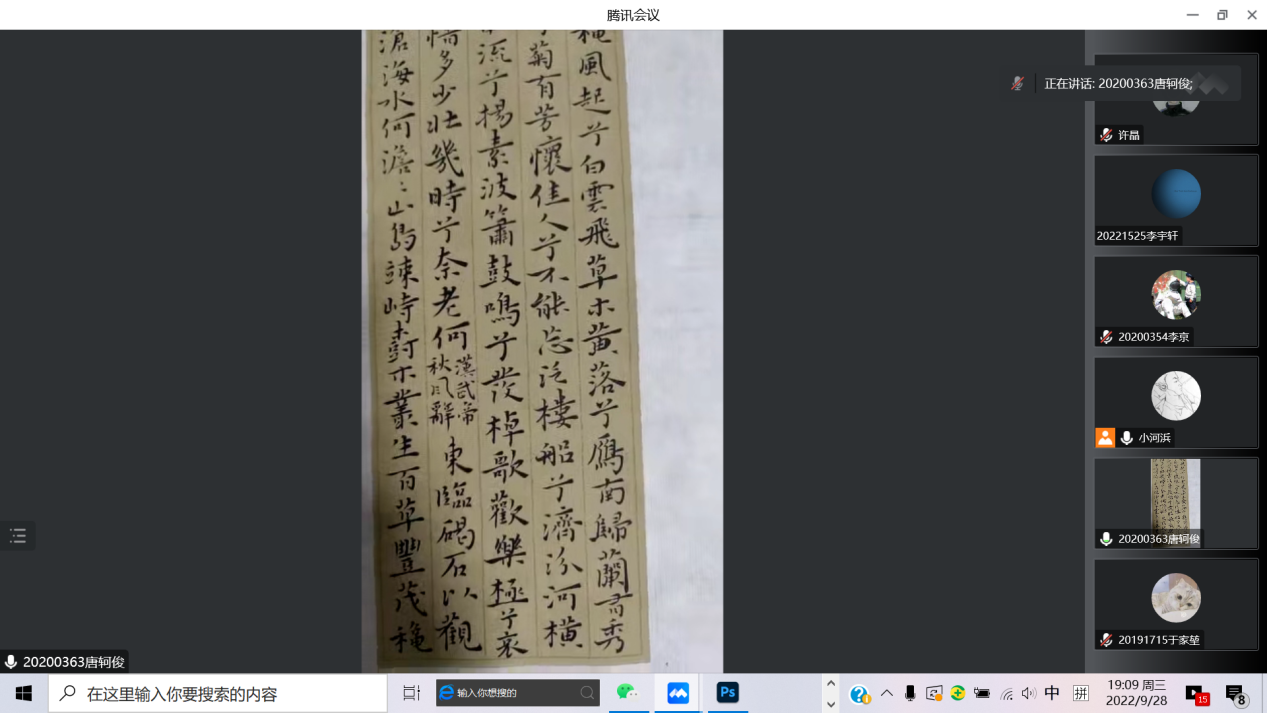 腾讯会议
正在讲话: 20200363唐轲俊;
許晶
20221525李宇轩
20200354李京
小河浜
20200363唐轲俊
20191715于家堃
龝風起兮白雲飛草木黃落兮鴈南歸蘭有秀
兮菊有芳懷佳人兮不能忘泛樓船兮濟汾河橫
流兮揚素波簫鼓鳴兮發棹歌歡樂極兮哀
情多少壯幾時兮奈老何
漢武帝
秋風辭
東臨碣石以觀
滄海水何澹〻山島竦峙樹木叢生百草豐茂龝
20200363唐轲俊
在这里输入你要搜索的内容
输入你想搜的
Ps
中
拼
19:09 周三
2022/9/28
15
8